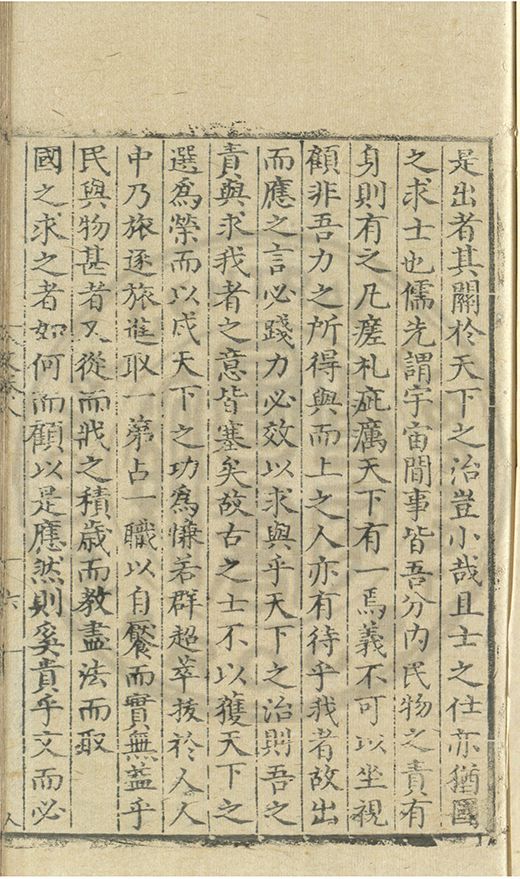 是出者其關於天下之治豈小哉且士之仕亦猶國
之求士也儒先謂宇宙間事皆吾分内民物之責有
身則有之凡瘥札疵癘天下有一焉義不可以坐視
顧非吾力之所得與而上之人亦有待乎我者故出
而應之言必踐力必效以求與乎天下之治則吾之
責與求我者之意皆塞矣故古之士不以獲天下之
選為榮而以成天下之功為慊若群超萃拔於人人
中乃旅逐旅進取一第占一職以自饜而實無益乎
民與物甚者又從而戕之積歲而教盡法而取
國之求之者如何而顧以是應然則奚貴乎文而必